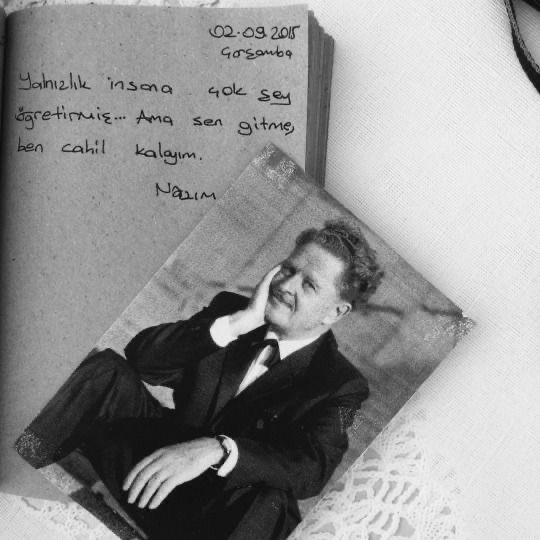 02.09.2015
Çarşamba
Yalnızlık insana çok şey
öğretirmiş... Ama sen gitme,
ben cahil kalayım.
Nazım